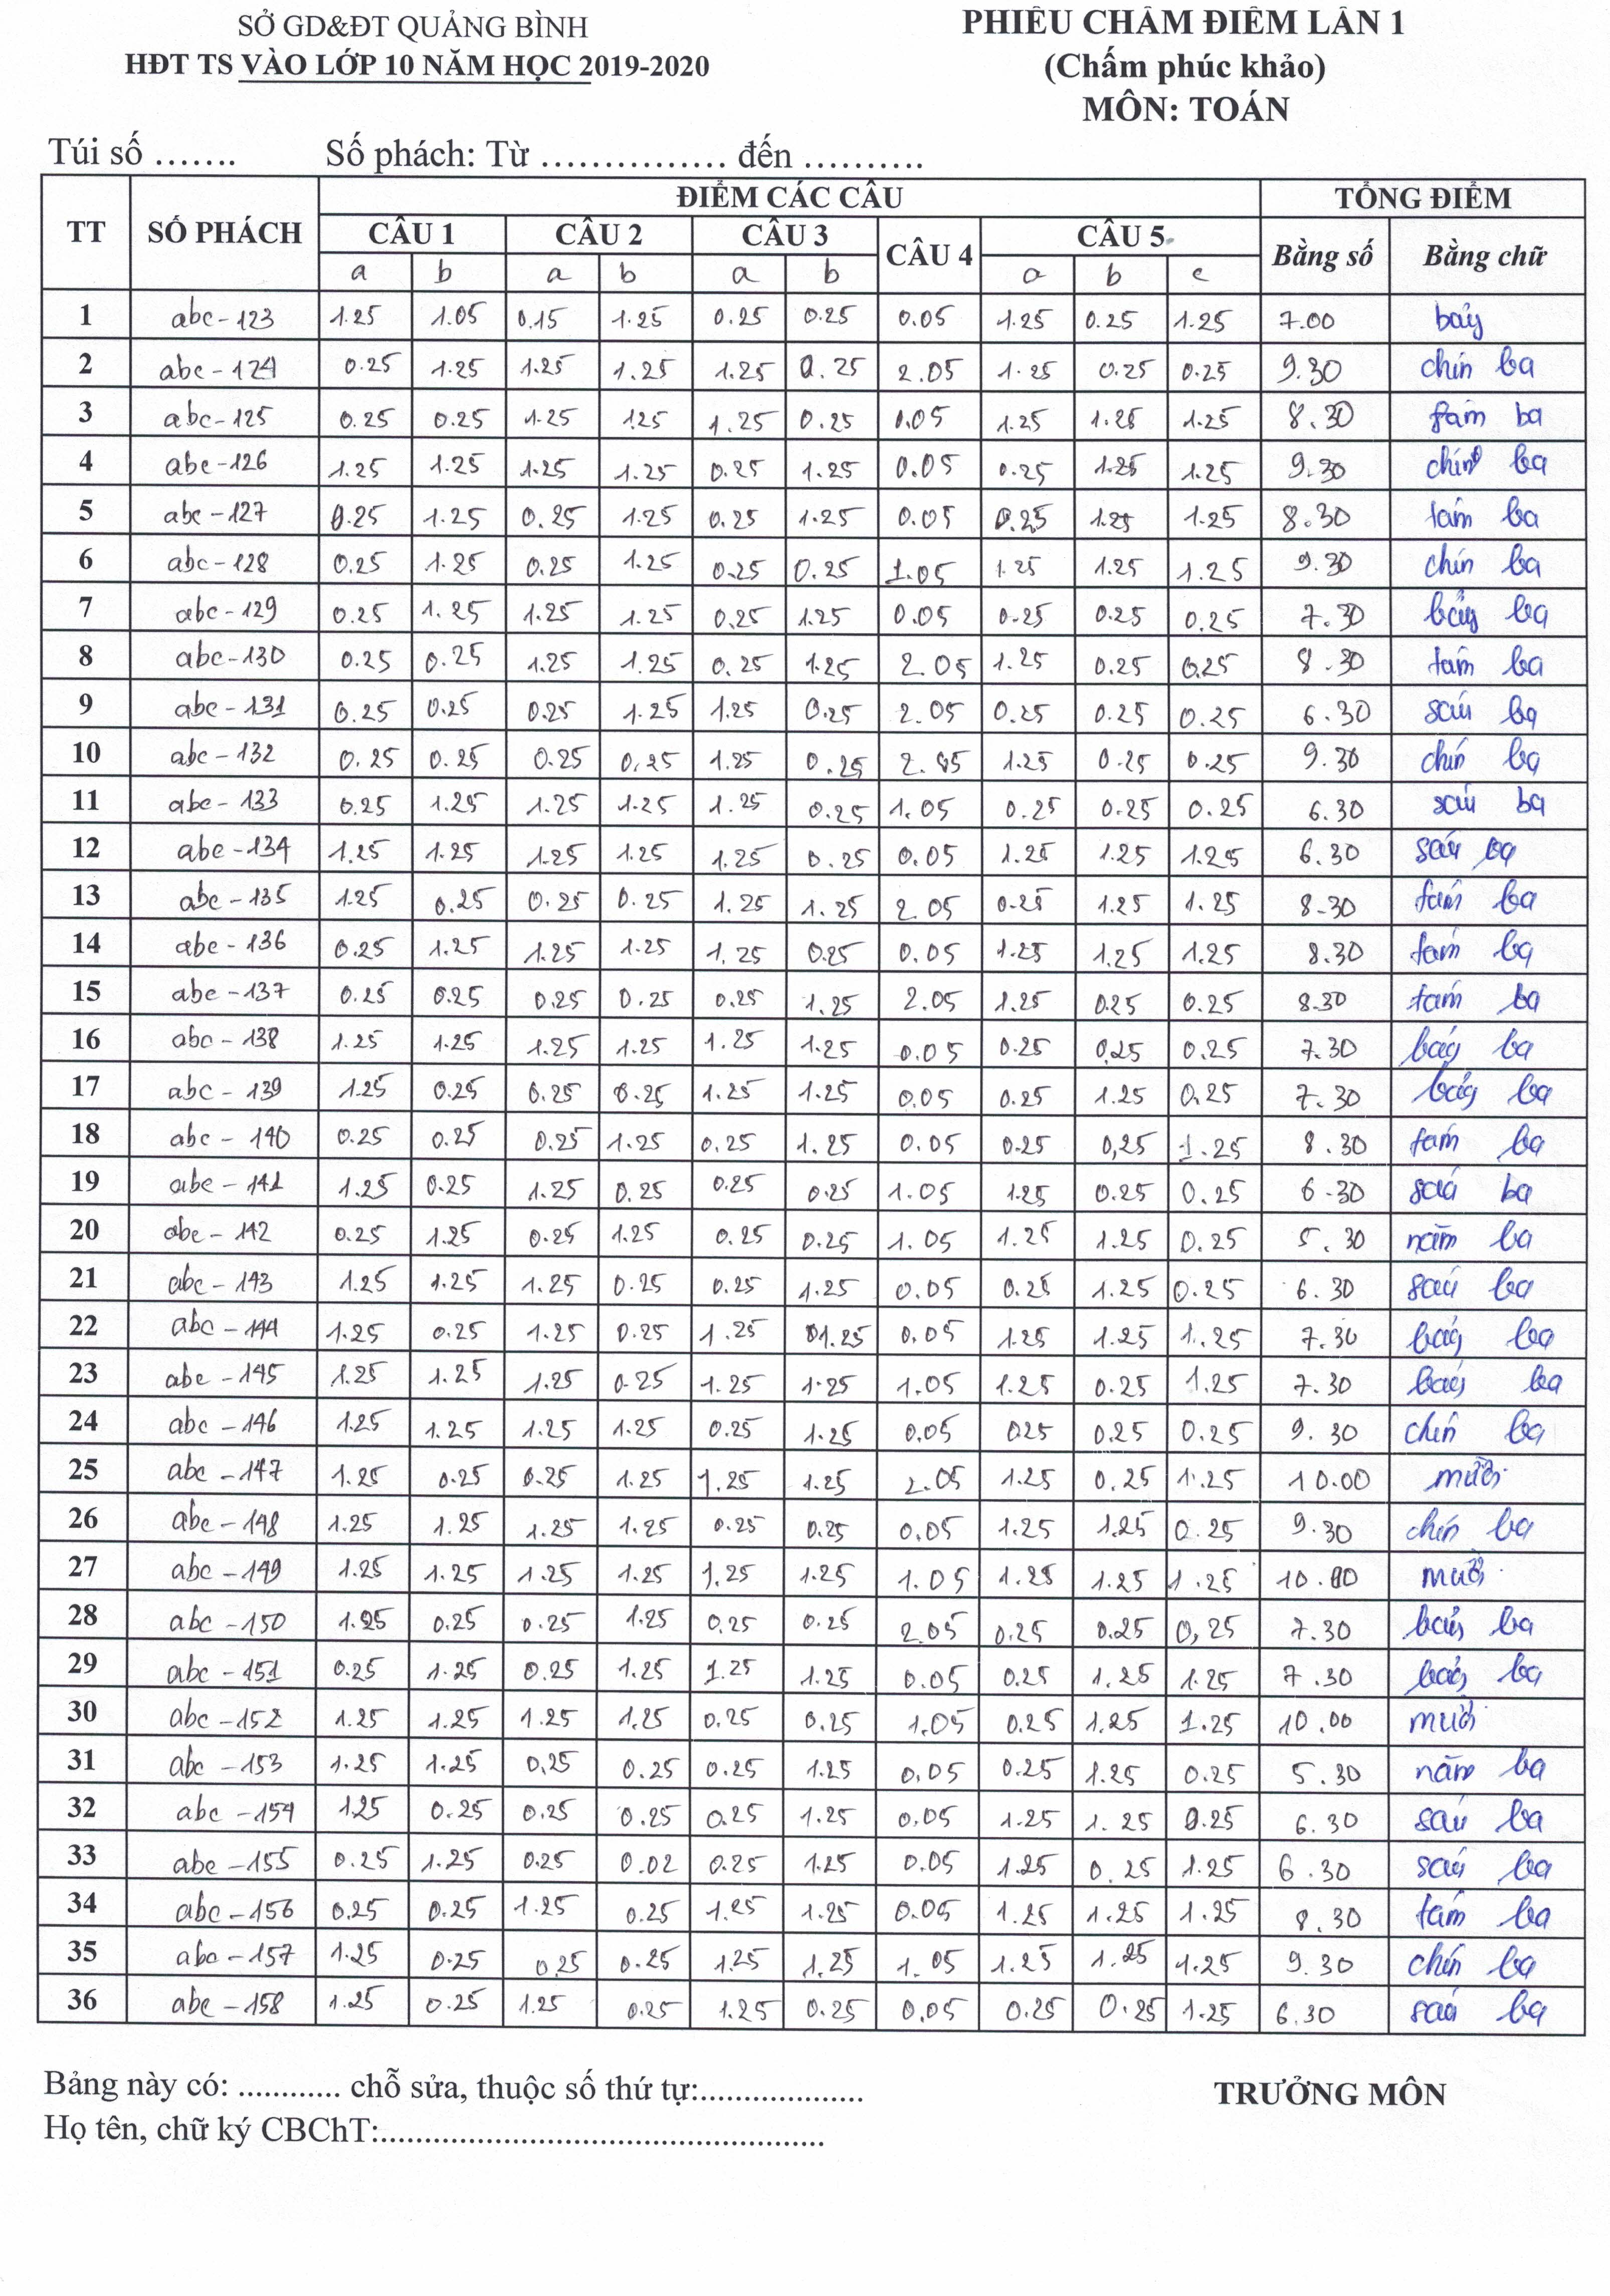 SỞ GD&ĐT QUẢNG BÌNH
HĐT TS VÀO LỚP 10 NĂM HỌC 2019-2020
PHIẾU CHẤM ĐIỂM LẦN 1
(Chấm phúc khảo)
MÔN: TOÁN
Túi số ....... Số phách: Từ ............... đến ..........
TT SỐ PHÁCH ĐIỂM CÁC CÂU TỔNG ĐIỂM
CÂU 1 CÂU 2 CÂU 3 CÂU 4 CÂU 5 Bằng số Bằng chữ
a b a b a b a b c
1 abc-123 1.25 1.05 0.15 1.25 0.25 0.25 0.05 1.25 0.25 1.25 7.00 bảy
2 abc-124 0.25 1.25 1.25 1.25 1.25 0.25 2.05 1.25 0.25 0.25 9.30 chín ba
3 abc-125 0.25 0.25 1.25 1.25 1.25 0.25 0.05 1.25 1.25 1.25 8.30 tám ba
4 abc-126 1.25 1.25 1.25 1.25 0.25 1.25 0.05 0.25 1.25 1.25 9.30 chín ba
5 abc-127 0.25 1.25 0.25 1.25 0.25 1.25 0.05 0.25 1.25 1.25 8.30 tám ba
6 abc-128 0.25 1.25 0.25 1.25 0.25 0.25 1.05 1.25 1.25 1.25 9.30 chín ba
7 abc-129 0.25 1.25 1.25 1.25 0.25 1.25 0.05 0.25 0.25 0.25 7.30 bảy ba
8 abc-130 0.25 0.25 1.25 1.25 0.25 1.25 2.05 1.25 0.25 0.25 8.30 tám ba
9 abc-131 0.25 0.25 0.25 1.25 1.25 0.25 2.05 0.25 0.25 0.25 6.30 sáu ba
10 abc-132 0.25 0.25 0.25 0.25 1.25 0.25 2.05 1.25 0.25 0.25 9.30 chín ba
11 abc-133 0.25 1.25 1.25 1.25 1.25 0.25 1.05 0.25 0.25 0.25 6.30 sáu ba
12 abc-134 1.25 1.25 1.25 1.25 1.25 0.25 0.05 1.25 1.25 1.25 6.30 sáu ba
13 abc-135 1.25 0.25 0.25 0.25 1.25 1.25 2.05 0.25 1.25 1.25 8.30 tám ba
14 abc-136 0.25 1.25 1.25 1.25 1.25 0.25 0.05 1.25 1.25 1.25 8.30 tám ba
15 abc-137 0.25 0.25 0.25 0.25 0.25 1.25 2.05 1.25 0.25 0.25 8.30 tám ba
16 abc-138 1.25 1.25 1.25 1.25 1.25 1.25 0.05 0.25 0,25 0.25 7.30 bảy ba
17 abc-139 1.25 0.25 0.25 0.25 1.25 1.25 0.05 0.25 1.25 0.25 7.30 bảy ba
18 abc-140 0.25 0.25 0.25 1.25 0.25 1.25 0.05 0.25 0,25 1.25 8.30 tám ba
19 abc-141 1.25 0.25 1.25 0.25 0.25 0.25 1.05 1.25 0.25 0.25 6.30 sáu ba
20 abc-142 0.25 1.25 0.25 1.25 0.25 0.25 1.05 1.25 1.25 0.25 5.30 năm ba
21 abc-143 1.25 1.25 1.25 0.25 0.25 1.25 0.05 0.25 1.25 0.25 6.30 sáu ba
22 abc-144 1.25 0.25 1.25 0.25 1.25 01.25 0.05 1.25 1.25 1.25 7.30 bảy ba
23 abc-145 1.25 1.25 1.25 0.25 1.25 1.25 1.05 1.25 0.25 1.25 7.30 bảy ba
24 abc-146 1.25 1.25 1.25 1.25 0.25 1.25 0.05 025 0.25 0.25 9.30 chín ba
25 abc-147 1.25 0.25 0.25 1.25 1.25 1.25 2.05 1.25 0.25 1.25 10.00 mười
26 abc-148 1.25 1.25 1.25 1.25 0.25 0.25 0.05 1.25 1.25 0.25 9.30 chín ba
27 abc-149 1.25 1.25 1.25 1.25 1.25 1.25 1.05 1.25 1.25 1.25 10.00 mười
28 abc-150 1.25 0.25 0.25 1.25 0.25 0.25 2.05 0.25 0.25 0,25 7.30 bảy ba
29 abc-151 0.25 1.25 0.25 1.25 1.25 1.25 0.05 0.25 1.25 1.25 7.30 bảy ba
30 abc-152 1.25 1.25 1.25 1.25 0.25 0.25 1.05 0.25 1.25 1.25 10.00 mười
31 abc-153 1.25 1.25 0,25 0.25 0.25 1.25 0.05 0.25 1.25 0.25 5.30 năm ba
32 abc-154 1.25 0.25 0.25 0.25 0.25 1.25 0.05 1.25 1.25 0.25 6.30 sáu ba
33 abc-155 0.25 1.25 0.25 0.02 0.25 1.25 0.05 1.25 0.25 1.25 6.30 sáu ba
34 abc-156 0.25 0.25 1.25 0.25 1.25 1.25 0.05 1.25 1.25 1.25 8.30 tám ba
35 abc-157 1.25 0.25 0.25 0.25 1.25 1.25 1.05 1.25 1.25 1.25 9.30 chín ba
36 abc-158 1.25 0.25 1.25 0.25 1.25 0.25 0.05 0.25 0.25 1.25 6.30 sáu ba
Bảng này có: ............ chỗ sửa, thuộc số thứ tự:...................
TRƯỞNG MÔN
Họ tên, chữ ký CBChT:..................................................